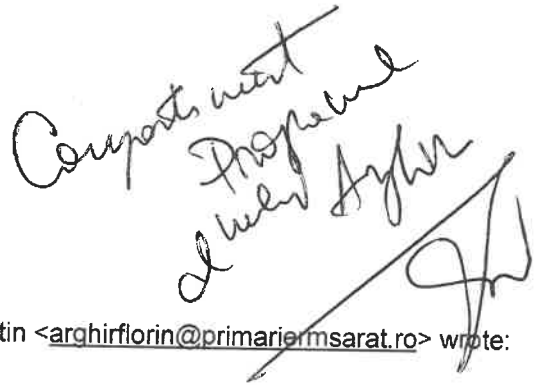 Compartiment
Programe
d nelor Arghir
tin <arghirflorin@primariermsarat.ro> wrote: